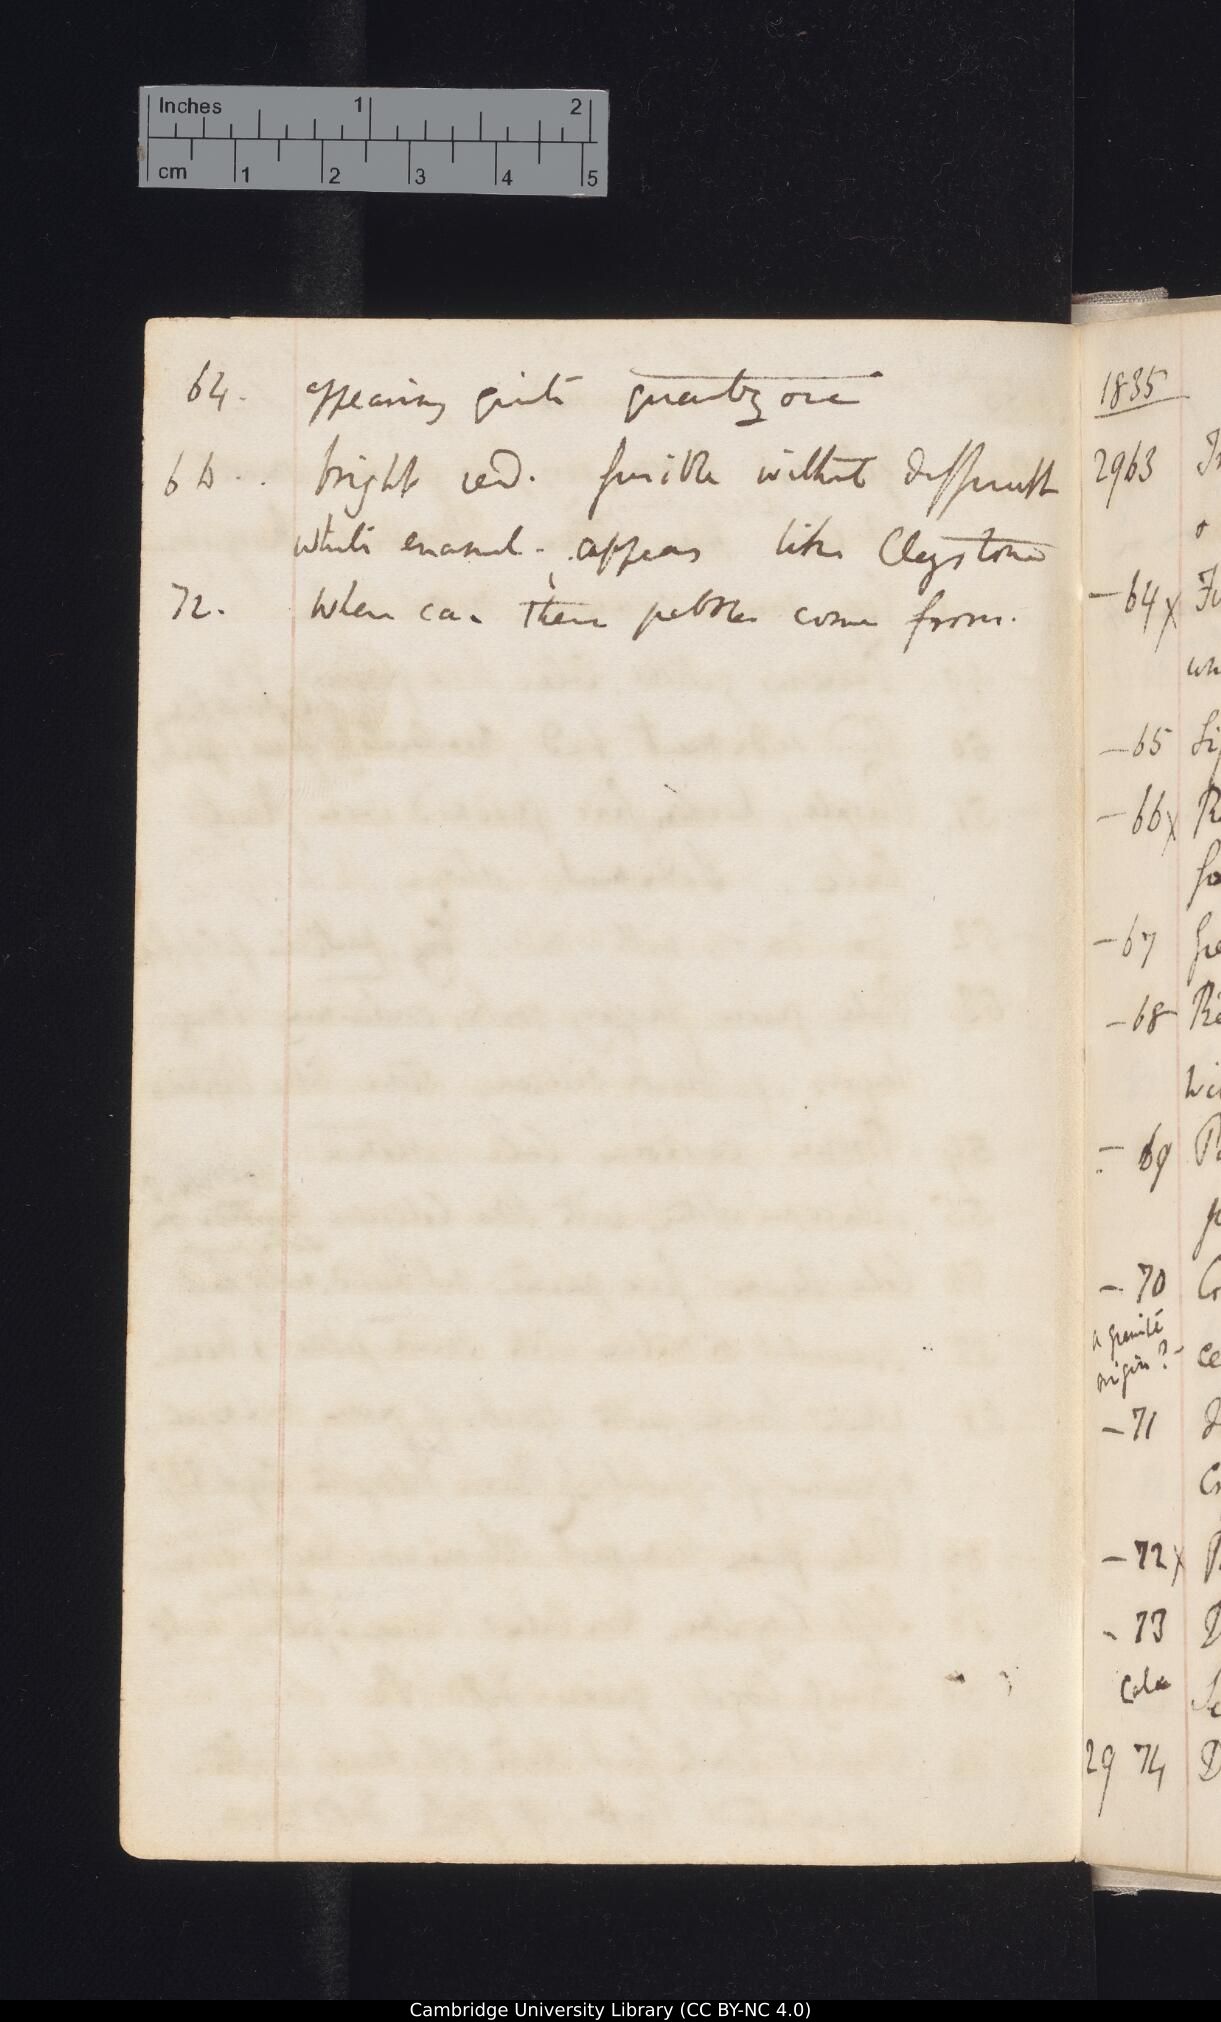 Inches 1 2
cm 1 2 3 4 5
64. appearing quite quartzose
66.. bright red. fusible without difficult
white enamel - appears like Claystone
72. Where can these pebbles come from.
1835
2963
-64x
-65
-66x
-67
-68
-69
-70
a granite
origin?-
-71
-72x
-73
2974
Cambridge University Library (CC BY-NC 4.0)